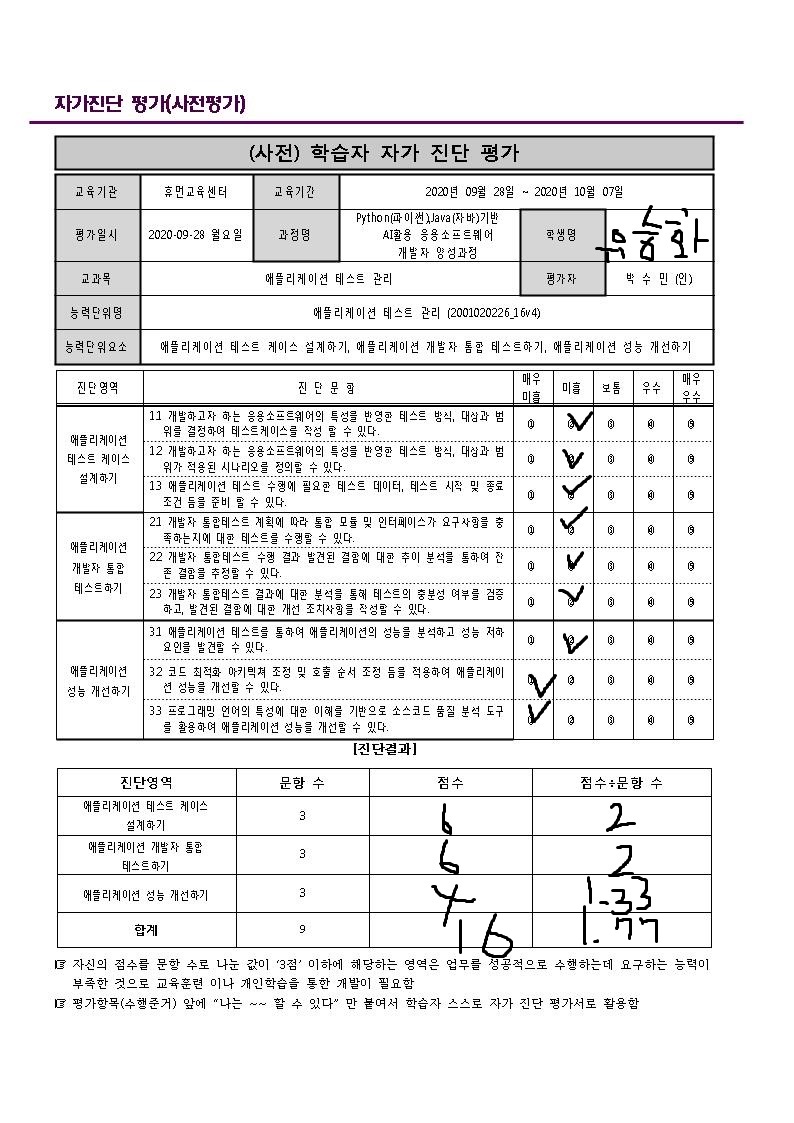 자가진단 평가(사전평가)
(사전) 학습자 자가 진단 평가
교육기관 휴먼교육센터 교육기간 2020년 09월 28일 ~ 2020년 10월 07일
평가일시 2020-09-28 월요일 과정명 Python(파이썬),Java(자바)기반
AI활용 응용소프트웨어
개발자 양성과정
학생명
교과목 애플리케이션 테스트 관리 평가자 박 수 민 (인)
능력단위명 애플리케이션 테스트 관리 (2001020226_16v4)
능력단위요소 애플리케이션 테스트 케이스 설계하기, 애플리케이션 개발자 통합 테스트하기, 애플리케이션 성능 개선하기
진단영역 진 단 문 항 매우 미흡 미흡 보통 우수 매우 우수
애플리케이션
테스트 케이스
설계하기
11 개발하고자 하는 응용소프트웨어의 특성을 반영한 테스트 방식, 대상과 범
위를 결정하여 테스트케이스를 작성 할 수 있다.
① ② ③ ④ ⑤
12 개발하고자 하는 응용소프트웨어의 특성을 반영한 테스트 방식, 대상과 범
위가 적용된 시나리오를 정의할 수 있다.
① ② ③ ④ ⑤
13 애플리케이션 테스트 수행에 필요한 테스트 데이터, 테스트 시작 및 종료
조건 등을 준비 할 수 있다.
① ② ③ ④ ⑤
애플리케이션
개발자 통합
테스트하기
21 개발자 통합테스트 계획에 따라 통합 모듈 및 인터페이스가 요구사항을 충
족하는지에 대한 테스트를 수행할 수 있다.
① ② ③ ④ ⑤
22 개발자 통합테스트 수행 결과 발견된 결함에 대한 추이 분석을 통하여 잔
존 결함을 추정할 수 있다.
① ② ③ ④ ⑤
23 개발자 통합테스트 결과에 대한 분석을 통해 테스트의 충분성 여부를 검증
하고, 발견된 결함에 대한 개선 조치사항을 작성할 수 있다.
① ② ③ ④ ⑤
애플리케이션
성능 개선하기
31 애플리케이션 테스트를 통하여 애플리케이션의 성능을 분석하고 성능 저하
요인을 발견할 수 있다.
① ② ③ ④ ⑤
32 코드 최적화 아키텍쳐 조정 및 호출 순서 조정 등을 적용하여 애플리케이
션 성능을 개선할 수 있다.
① ② ③ ④ ⑤
33 프로그래밍 언어의 특성에 대한 이해를 기반으로 소스코드 품질 분석 도구
를 활용하여 애플리케이션 성능을 개선할 수 있다.
① ② ③ ④ ⑤
[진단결과]
진단영역 문항 수 점수 점수÷문항 수
애플리케이션 테스트 케이스
설계하기
3 6 2
애플리케이션 개발자 통합
테스트하기
3 6 2
애플리케이션 성능 개선하기 3 4 1.33
합계 9 16 1.77
☞ 자신의 점수를 문항 수로 나눈 값이 '3점' 이하에 해당하는 영역은 업무를 성공적으로 수행하는데 요구하는 능력이
부족한 것으로 교육훈련 이나 개인학습을 통한 개발이 필요함
☞ 평가항목(수행준거) 앞에 "나는 ~~ 할 수 있다" 만 붙여서 학습자 스스로 자가 진단 평가서로 활용함